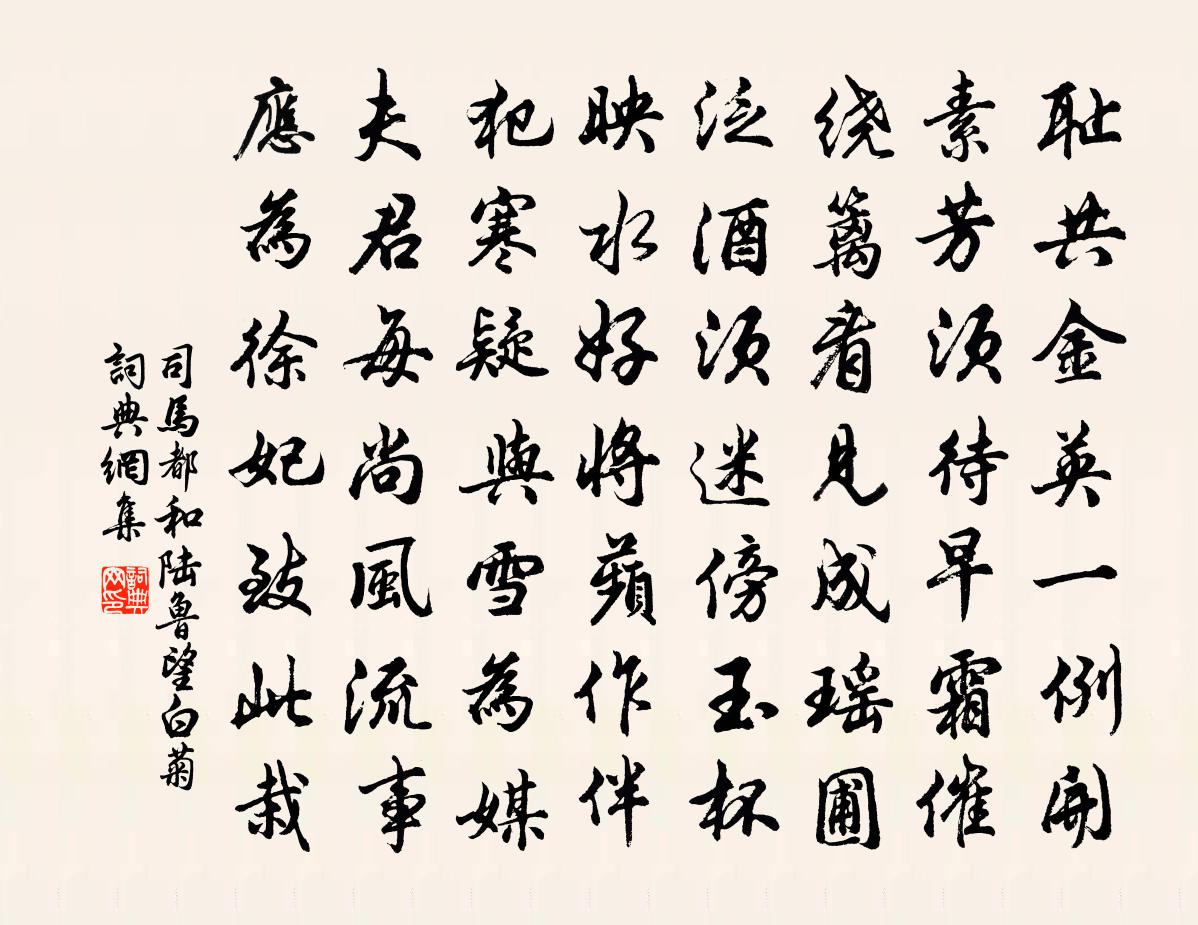 耻共金英一例開
素芳須待早霜催
绕籬看見成瑶圃
泛酒須迷傍玉杯
映水好將蘋作伴
犯寒疑與雪為媒
夫君每尚風流事
應為徐妃致此栽
司馬都和陆魯望白菊
詞典網集
詞典网印